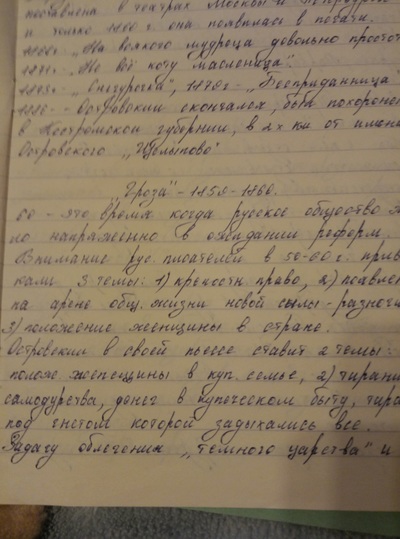 поставлена в театрах Москвы и
и только 1860 г. она появилась в печати.
1868г „На всякого мудреца довольно
1871г - „Не всё коту масленица"
1873г - „Снегурочка", 1879г - „Бесприданница"
1886 - Островский скончался, был
в Костромской губернии, в 2х км от
Островского „Щелыково"
„Гроза" - 1859-1860.
60 - это время когда русское общество
ло напряженно в ожидании реформ.
Внимание рус писателей в 50-60 г.
кали 3 темы: 1) крепостн право, 2)
на арене общ. жизни новой силы -
3) положение женщины в стране.
Островский в своей пьессе ставит 2 темы:
полож. женщины в куп. семье, 2)
самодурства, денег в купеческом быту,
под гнетом которой задыхались все.
Задачу обличения „темного царства" и